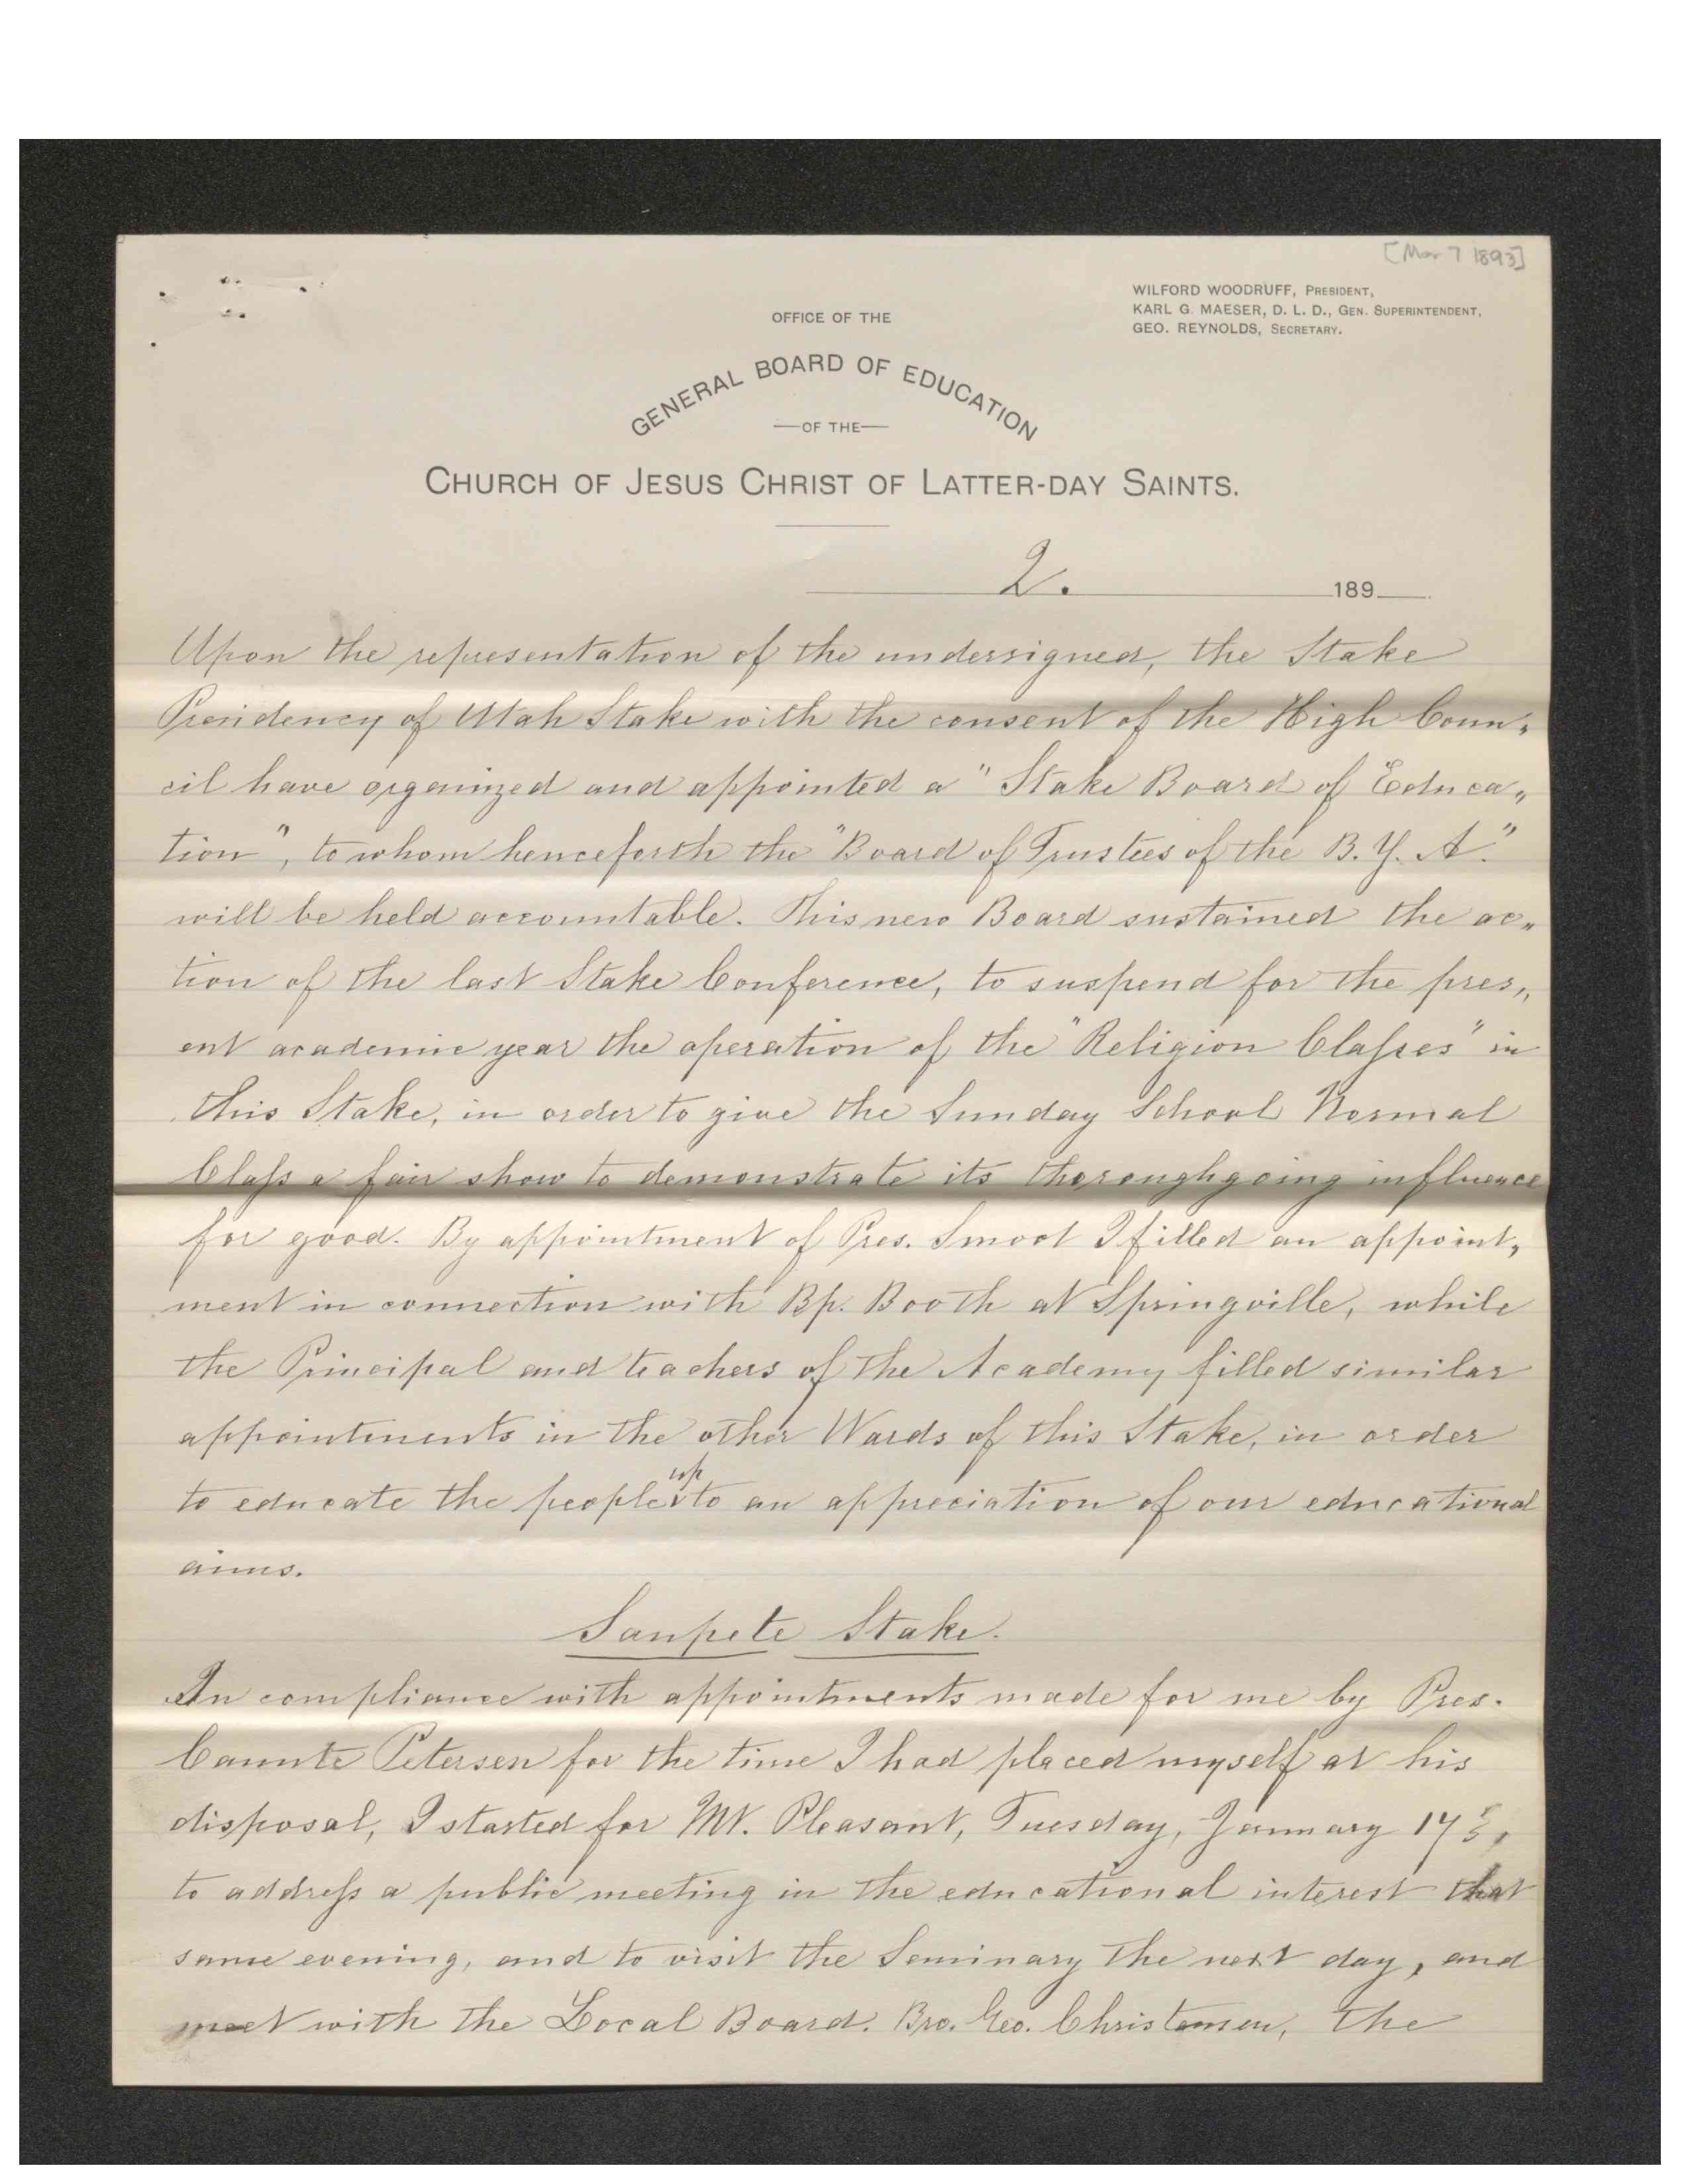 [Mar 7 1893]
WILFORD WOODRUFF, PRESIDENT,
KARL G. MAESER, D. L. D., GEN. SUPERINTENDENT,
GEO. REYNOLDS, SECRETARY.
OFFICE OF THE
GENERAL BOARD OF EDUCATION
—OF THE—
CHURCH OF JESUS CHRIST OF LATTER-DAY SAINTS.
2. 189
Upon the representation of the undersigned, the Stake
Presidency of Utah Stake with the consent of the High Coun-
cil have organized and appointed a "Stake Board of Educa-
tion", to whom henceforth the "Board of Trustees of the B. Y. A."
will be held accountable. This new Board sustained the ac-
tion of the last Stake Conference, to suspend for the pres-
ent academic year the operation of the "Religion Classes" in
this Stake, in order to give the Sunday School Normal
Class a fair show to demonstrate its thoroughgoing influence
for good. By appointment of Pres. Smoot I filled an appoint-
ment in connection with Bp. Booth at Springville, while
the Principal and teachers of the Academy filled similar
appointments in the other Wards of this Stake, in order
to educate the people up to an appreciation of our educational
aims.
Sanpete Stake.
In compliance with appointments made for me by Pres.
Canute Petersen for the time I had placed myself at his
disposal, I started for Mt. Pleasant, Tuesday, January
to address a public meeting in the educational interest that
same evening, and to visit the Seminary the next day, and
meet with the Local Board. Bro. Geo. Christensen, the